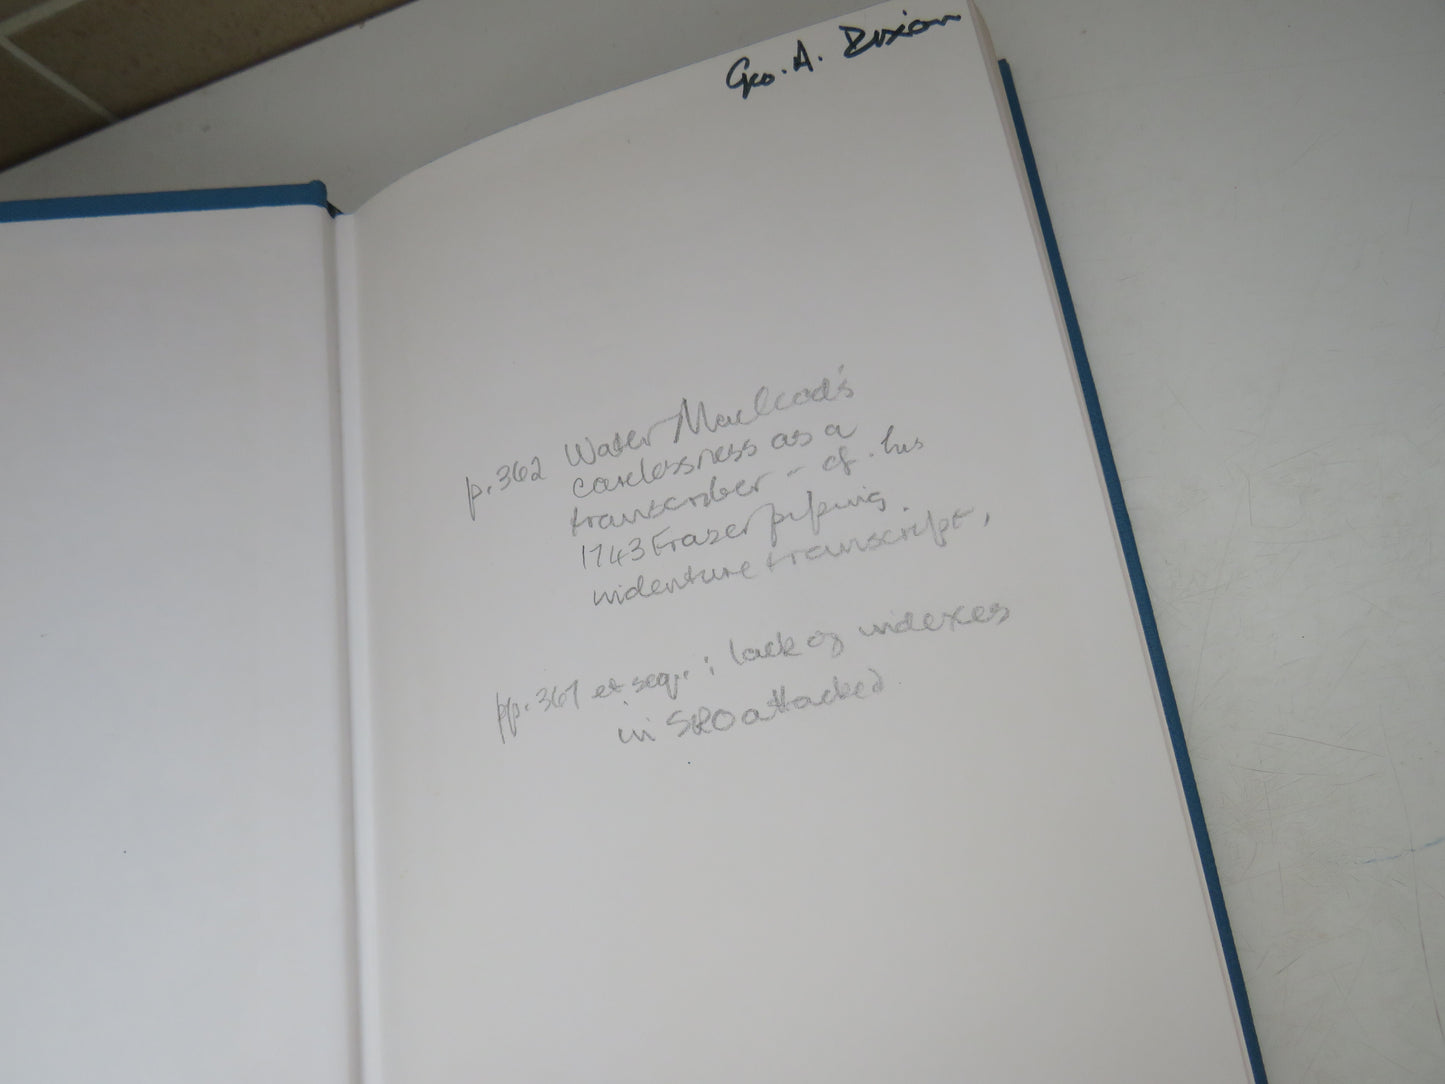 Geo. A. Dixon
p. 362 Walter Macleod's
carelessness as a
transcriber – cf. his
1743 Fraser piping
indenture transcript,
pp. 367 et seq. : lack of indexes
in SRO attacked